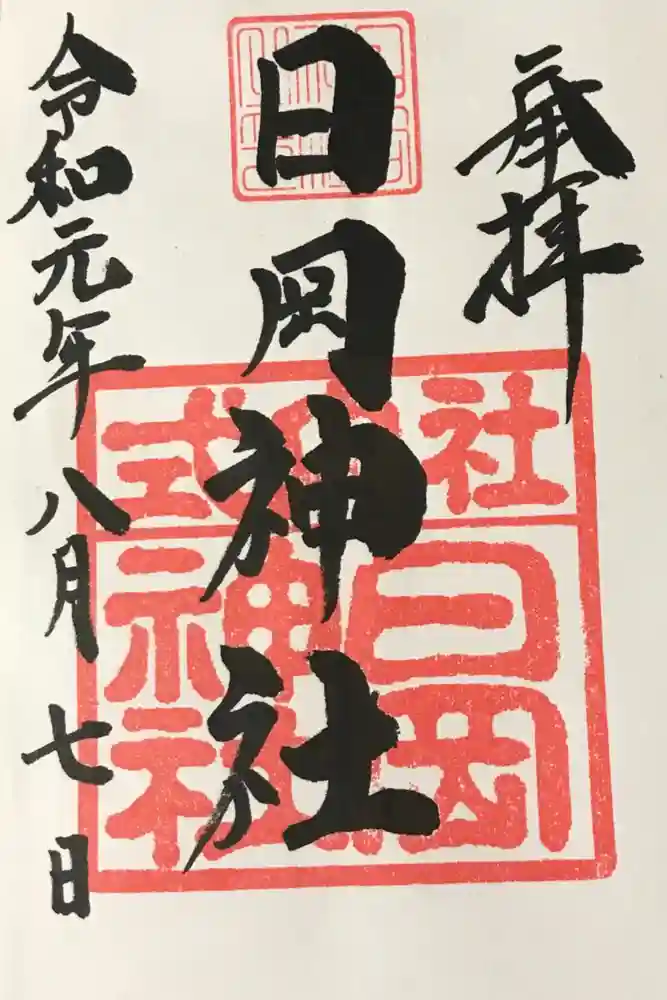 奉拝
日岡神社
令和元年八月七日
社中式
日岡
神社